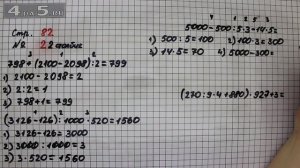 4●5.ru
Стр. 82
№ 2 2 столбик
798+(2100-2098):2=799
1) 2100-2098=2
2) 2:2=1
3) 798+1=799
(3126-126):1000·520=1560
1) 3126-126=3000
2) 3000:1000=3
3) 3·520=1560
5000-500:5·3-14·5=
1) 500:5=100 2) 100·3=300
3) 14·5=70 4) 5000-300=
(270:9·4+880)·927+3=